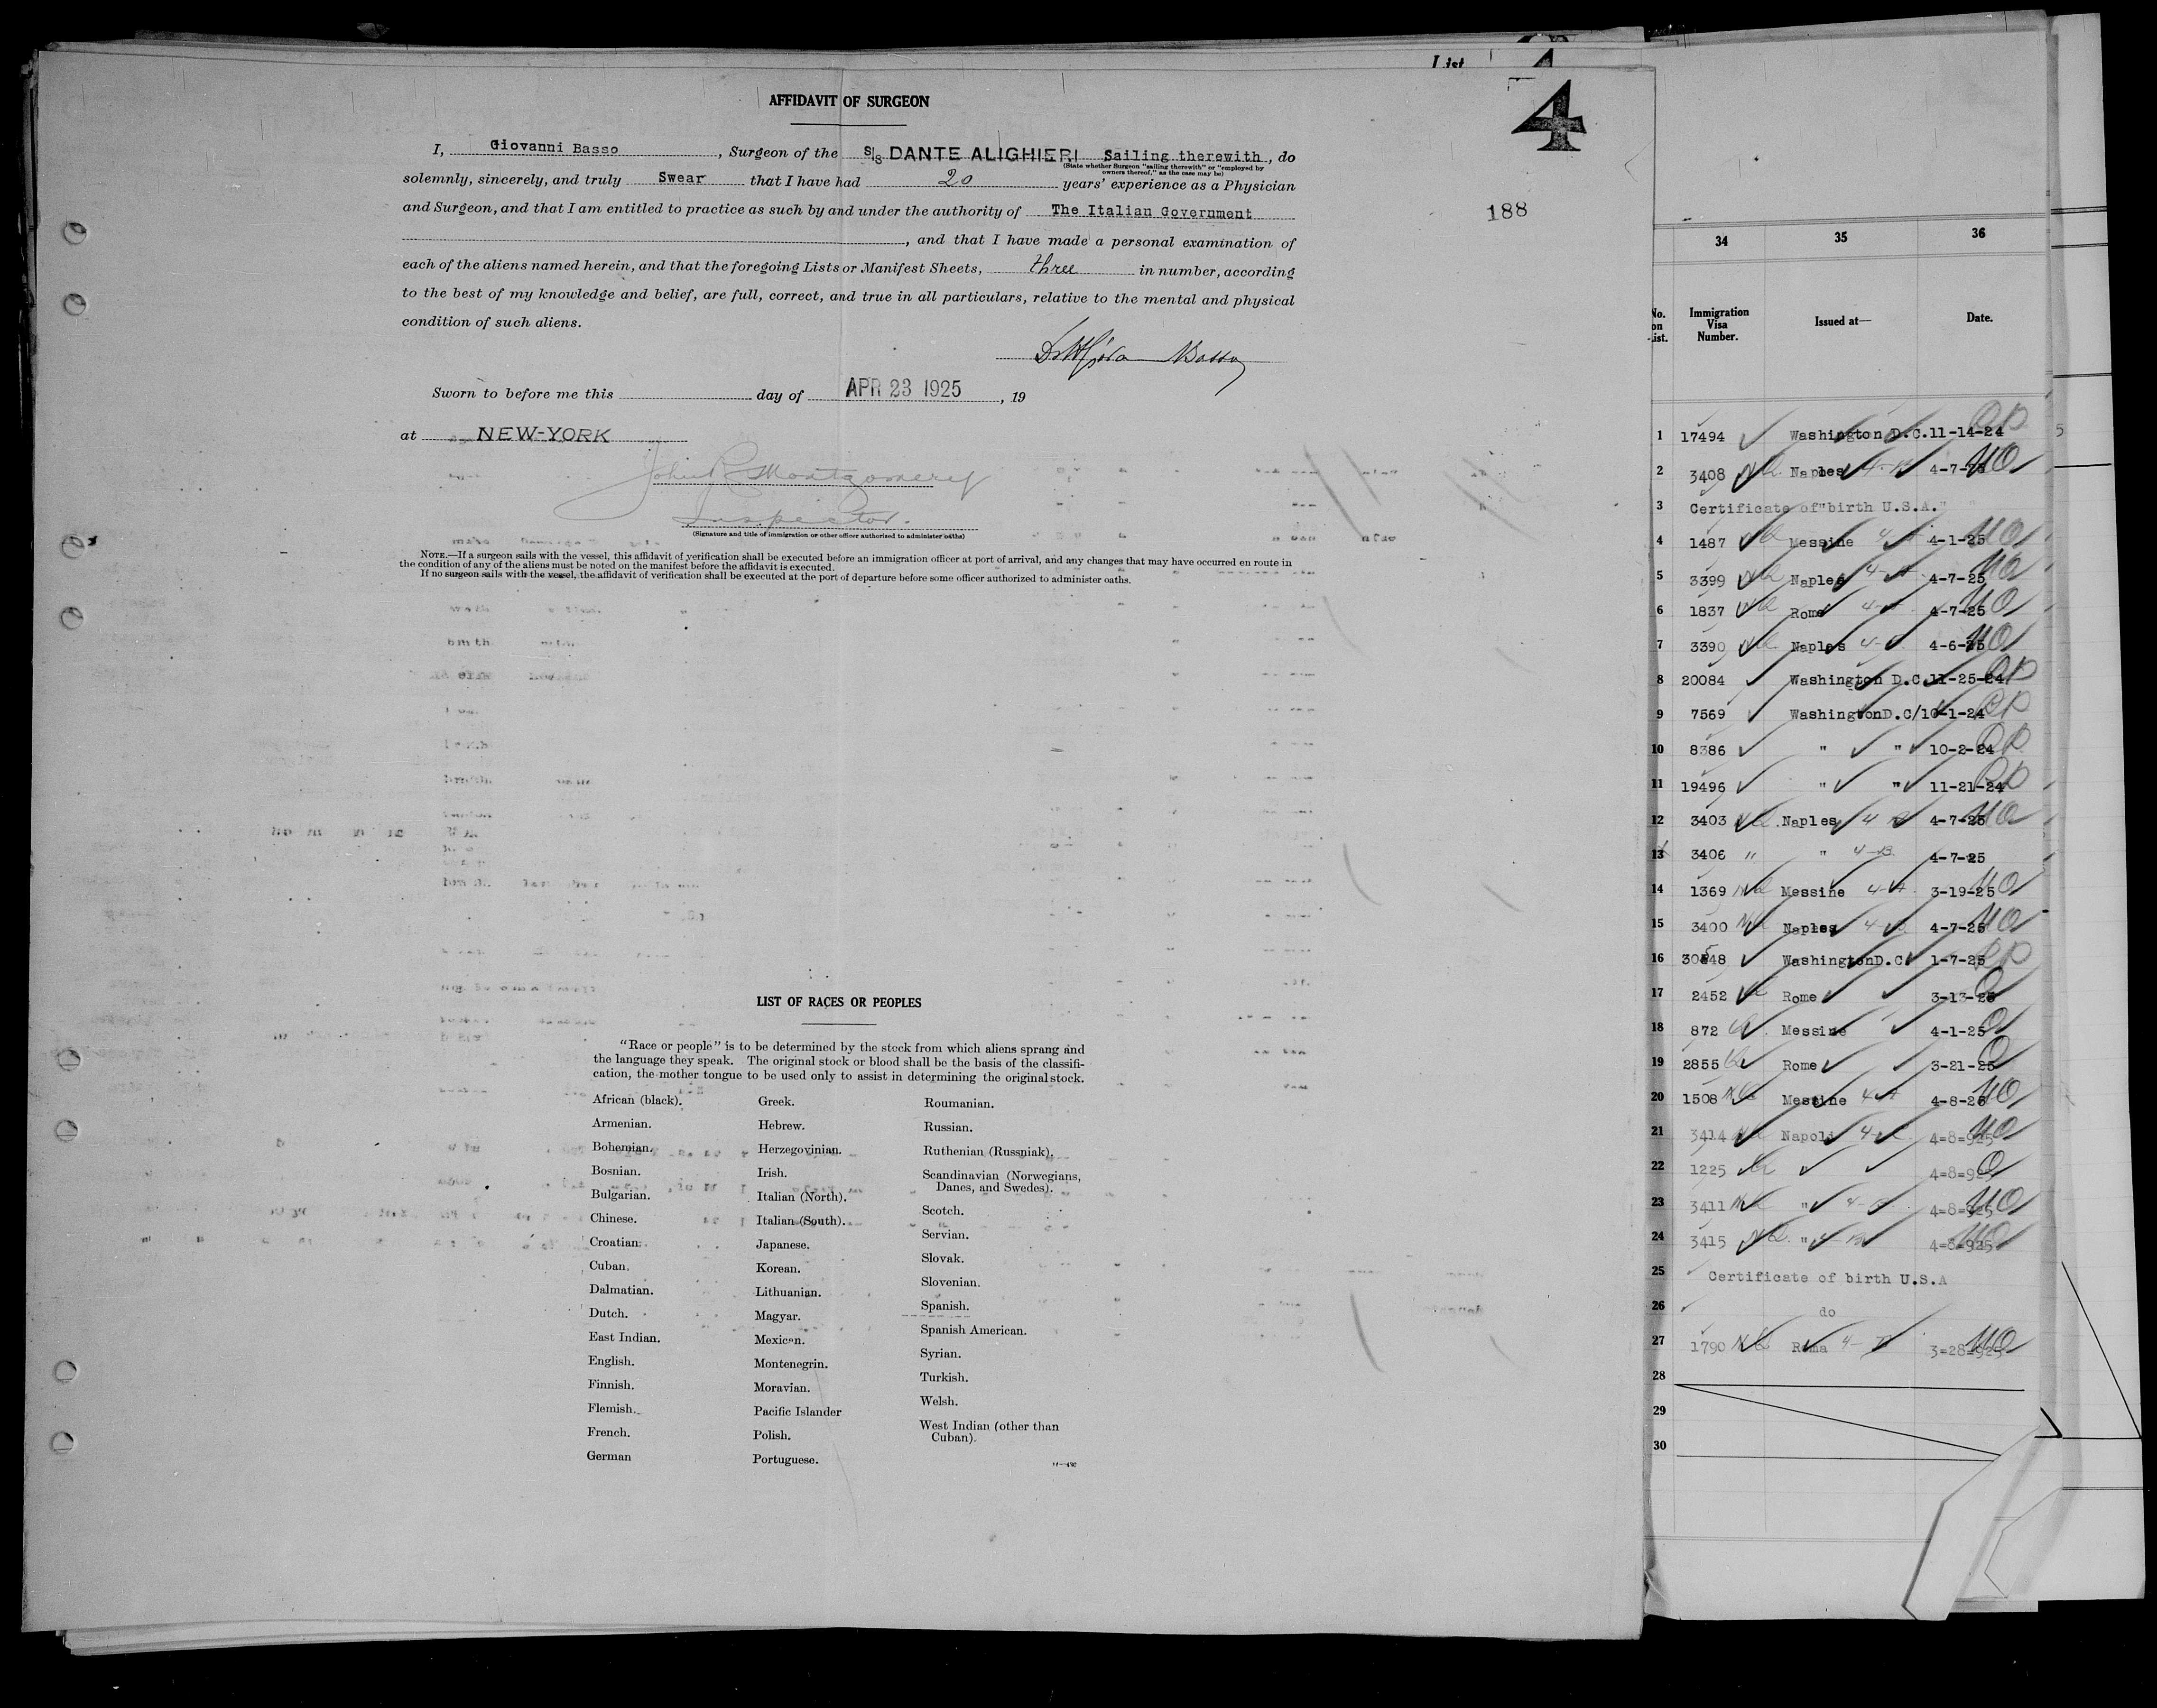 List
4
AFFIDAVIT OF SURGEON
I, Giovanni Basso, Surgeon of the S/S DANTE ALIGHIERI Sailing therewith, do
(State whether Surgeon "sailing therewith" or "employed by
owners thereof," as the case may be)
solemnly, sincerely, and truly Swear that I have had 20 years' experience as a Physician
and Surgeon, and that I am entitled to practice as such by and under the authority of The Italian Government
, and that I have made a personal examination of
each of the aliens named herein, and that the foregoing Lists or Manifest Sheets, three in number, according
to the best of my knowledge and belief, are full, correct, and true in all particulars, relative to the mental and physical
condition of such aliens.
188
Basso
Sworn to before me this day of APR 23 1925, 19
at NEW-YORK
John R Montgomery
Inspector.
(Signature and title of immigration or other officer authorized to administer oaths)
NOTE.—If a surgeon sails with the vessel, this affidavit of verification shall be executed before an immigration officer at port of arrival, and any changes that may have occurred en route in
the condition of any of the aliens must be noted on the manifest before the affidavit is executed.
If no surgeon sails with the vessel, the affidavit of verification shall be executed at the port of departure before some officer authorized to administer oaths.
LIST OF RACES OR PEOPLES
"Race or people" is to be determined by the stock from which aliens sprang and
the language they speak. The original stock or blood shall be the basis of the classifi-
cation, the mother tongue to be used only to assist in determining the original stock.
African (black).
Armenian.
Bohemian.
Bosnian.
Bulgarian.
Chinese.
Croatian.
Cuban.
Dalmatian.
Dutch.
East Indian.
English.
Finnish.
Flemish.
French.
German
Greek.
Hebrew.
Herzegovinian.
Irish.
Italian (North).
Italian (South).
Japanese.
Korean.
Lithuanian.
Magyar.
Mexican.
Montenegrin.
Moravian.
Pacific Islander
Polish.
Portuguese.
Roumanian.
Russian.
Ruthenian (Russniak).
Scandinavian (Norwegians,
Danes, and Swedes).
Scotch.
Servian.
Slovak.
Slovenian.
Spanish.
Spanish American.
Syrian.
Turkish.
Welsh.
West Indian (other than
Cuban).
34 35 36
No. on List. Immigration Visa Number. Issued at— Date.
1 17494 Washington D.C. 11-14-24
2 3408 Naples 4-7-25
3 Certificate of "birth U.S.A."
4 1487 Messine 4-1-25
5 3399 Naples 4-7-25
6 1837 Rome 4-7-25
7 3390 Naples 4-6-25
8 20084 Washington D.C. 11-25-24
9 7569 WashingtonD.C/10-1-24
10 8386 " " 10-2-24
11 19496 " " 11-21-24
12 3403 Naples 4-7-25
13 3406 " " 4-7-25
14 1369 Messine 3-19-25
15 3400 Naples 4-7-25
16 30548 WashingtonD.C. 1-7-25
17 2452 Rome 3-13-25
18 872 Messine 4-1-25
19 2855 Rome 3-21-25
20 1508 Messine 4-8-25
21 3414 Napoli 4=8=925
22 1225 " 4=8=925
23 3411 " 4=8=925
24 3415 " 4=8=925
25 Certificate of birth U.S.A
26 do
27 1790 Roma 3=28=925
28
29
30